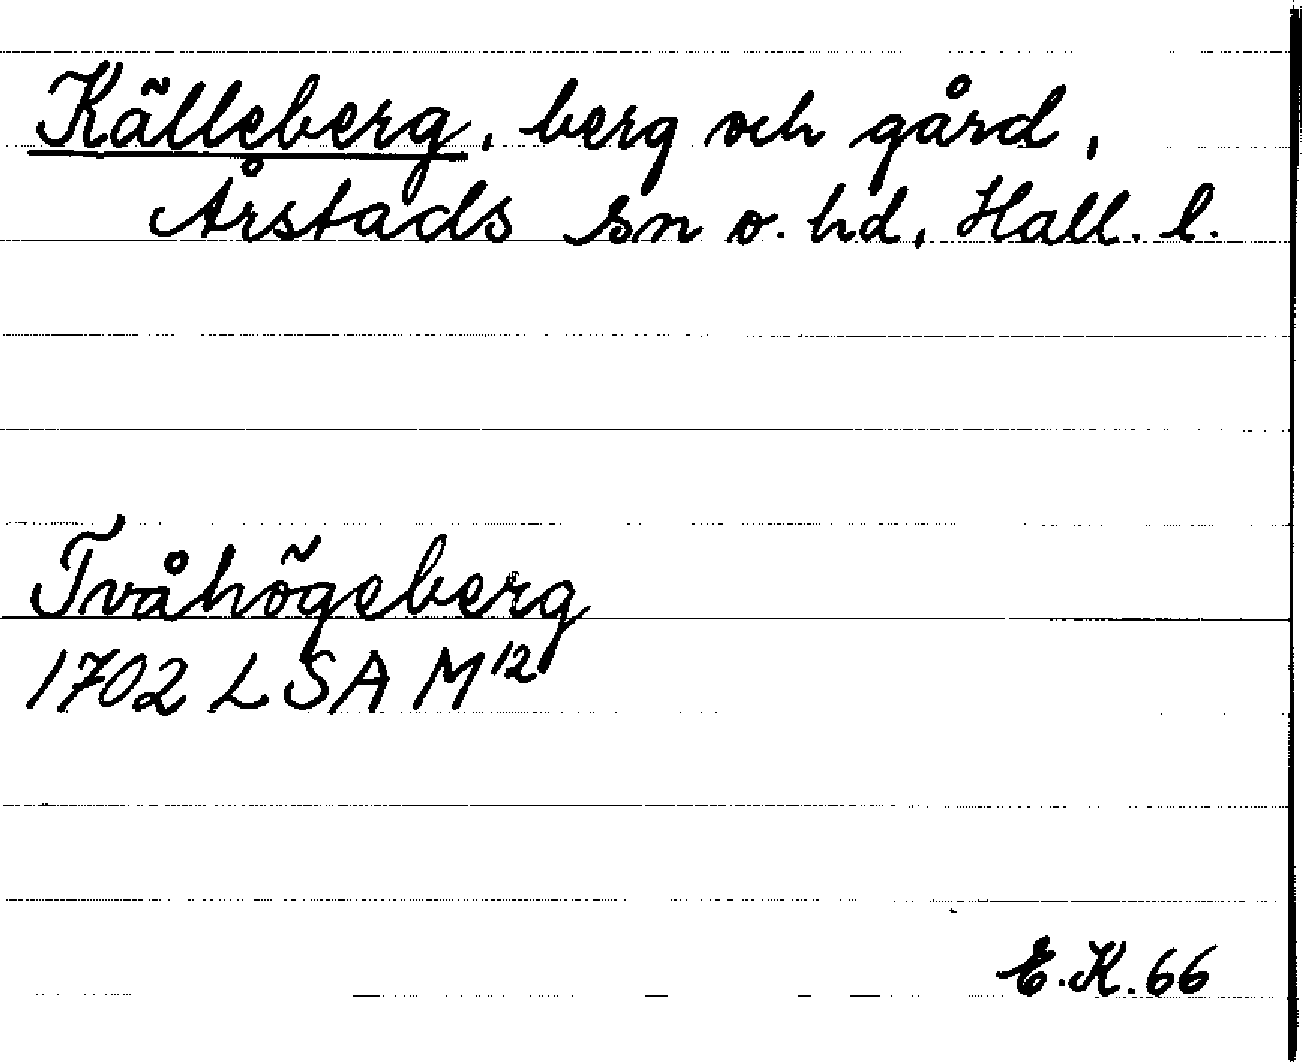 Källeberg, berg och gård,
Årstads sn o. hd, Hall. l.
Tvåhögeberg
1702 LSA M12
E.K. 66